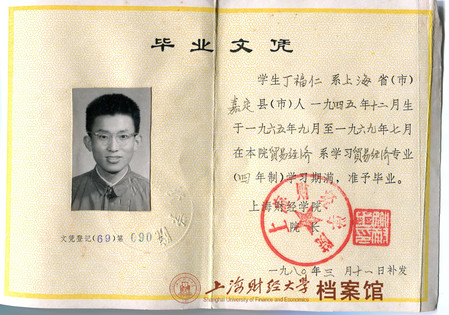 毕业文凭
学生丁福仁 系上海省(市)
嘉定县(市)人 一九四五年十二月生
于一九六五年九月至一九六九年七月
在本院贸易经济 系学习贸易经济专业
(四年制)学习期满，准予毕业。
上海财经学院
院 长
文凭登记(69)第 090
一九八〇年三月十一日补发
上海财经大学 档案馆
Shanghai University of Finance and Economics